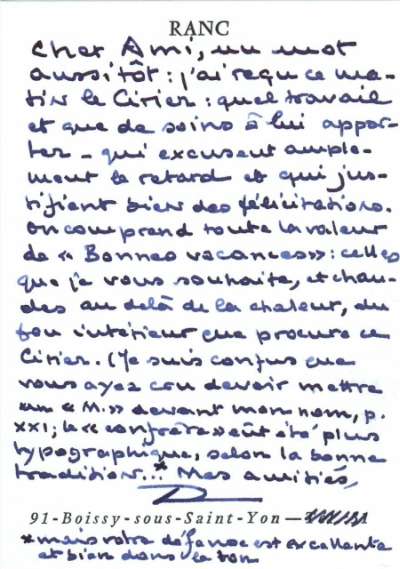 RANC
Cher Ami, un mot
aussitôt : j'ai reçu ce ma-
tin le Cirier : quel travail
et que de soins à lui appor-
ter – qui excusent ample-
ment le retard et qui jus-
tifient bien des félicitations.
On comprend toute la valeur
de « Bonnes vacances » : celles
que je vous souhaite, et chau-
des au delà de la chaleur, du
feu intérieur que procure ce
Cirier. (Je suis confus que
vous ayez cru devoir mettre
un « M. » devant mon nom, p.
XXI ; le « confrère » eût été plus
typographique, selon la bonne
tradition...* Mes amitiés,
91-Boissy-sous-Saint-Yon —
* mais votre défense est excellente
et bien dans le ton